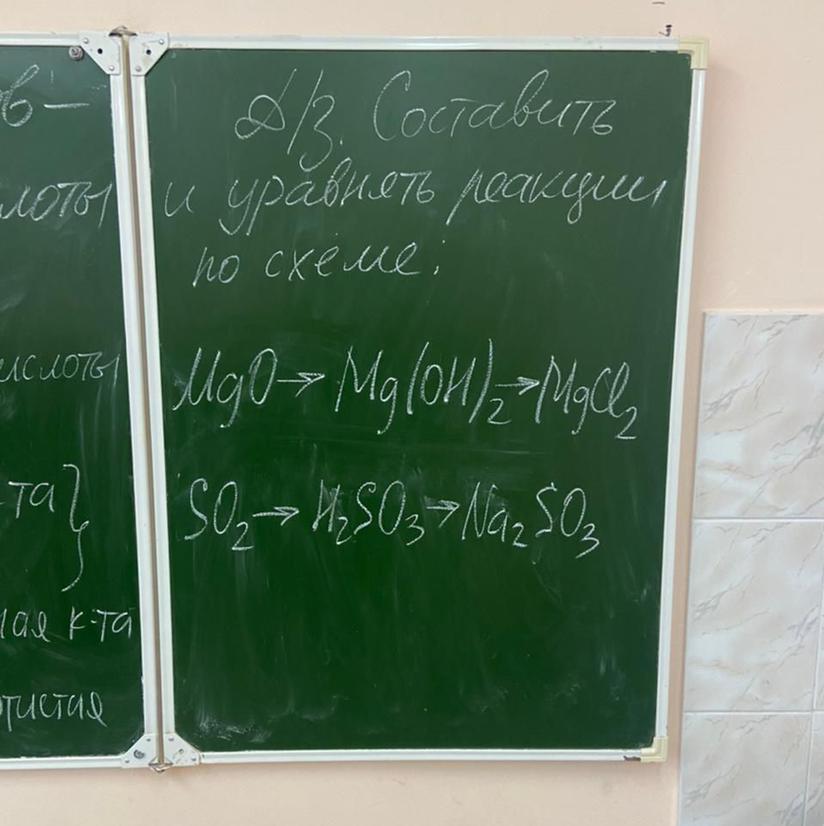 в –
лоты
ислоты
та}
ная к-та
отистая
Д/з. Составить
и уравнять реакции
по схеме:
MgO → Mg(OH)₂ → MgCl₂
SO₂ → H₂SO₃ → Na₂SO₃